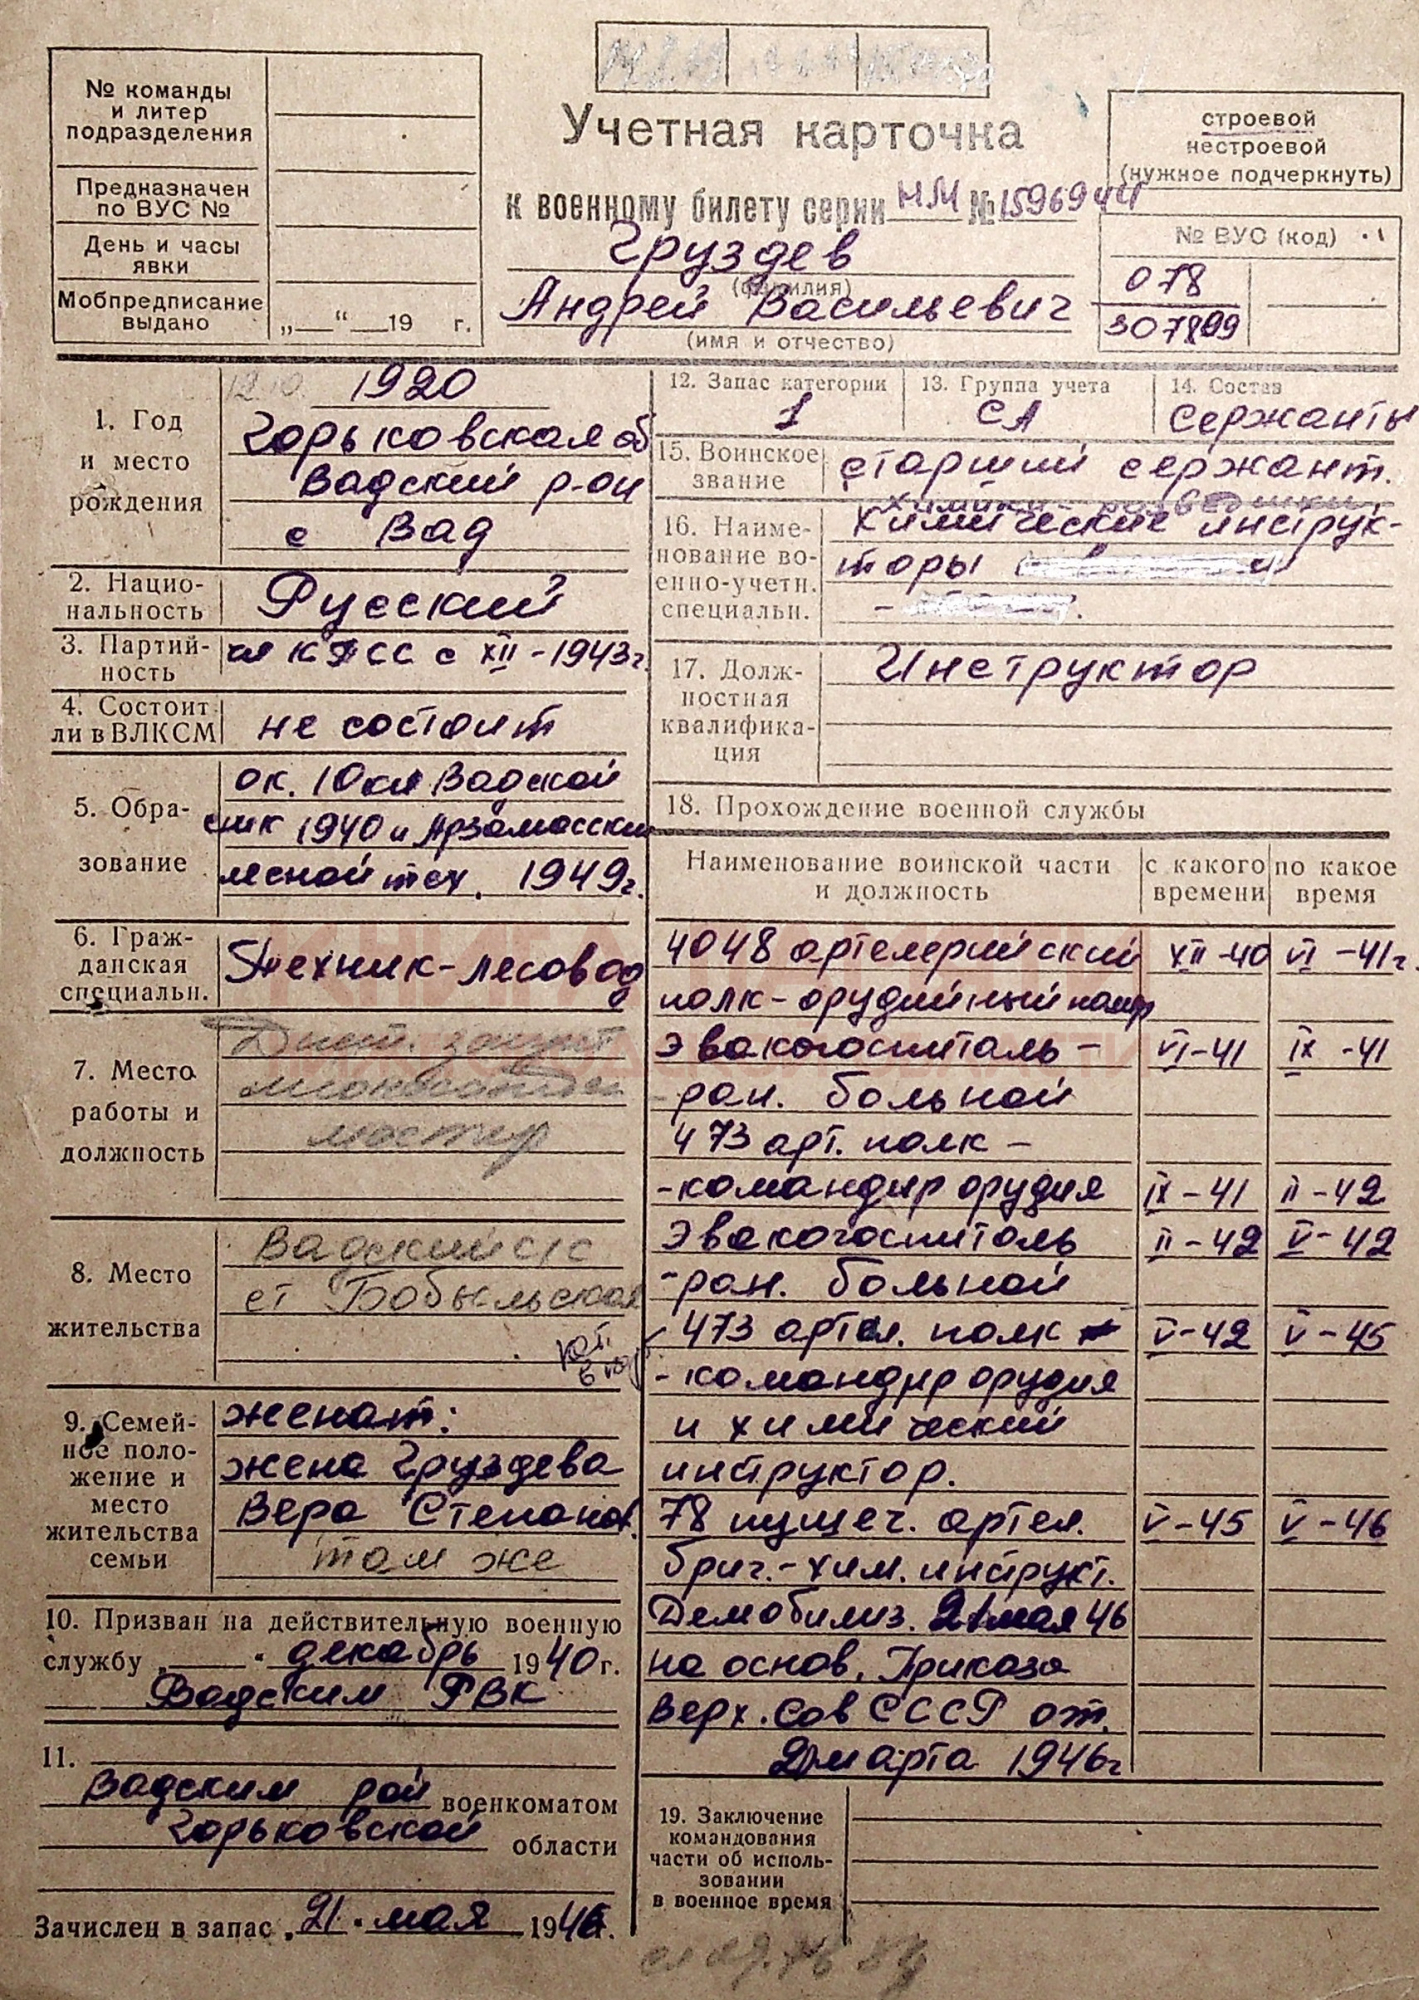 № команды
и литер
подразделения
Предназначен
по ВУС №
День и часы
явки
Мобпредписание
выдано
„ “ 19 г.
Учетная карточка
к военному билету серии НМ № 1596944
Груздев
(фамилия)
Андрей Васильевич
(имя и отчество)
строевой
нестроевой
(нужное подчеркнуть)
№ ВУС (код)
078
307809
1. Год
и место
рождения
12.10. 1920
Горьковская об
Вадский р-он
с Вад
2. Нацио-
нальность
Русский
3. Партий-
ность
чл КПСС с XII - 1943г.
4. Состоит
ли в ВЛКСМ
не состоит
5. Обра-
зование
ок. 10 кл Вадской
сшк 1940 и Арзамасский
лесной тех. 1949г.
6. Граж-
данская
специальн.
техник-лесовод
7. Место
работы и
должность
мастер
8. Место
жительства
Вадский с/с
ст Бобыльская
9. Семей-
ное поло-
жение и
место
жительства
семьи
женат:
жена Груздева
Вера Степанов.
там же
10. Призван на действительную военную
службу „ “ декабрь 1940 г.
Вадским РВК
11.
Вадским рай военкоматом
Горьковской области
Зачислен в запас „21“ мая 1946г.
12. Запас категории
1
13. Группа учета
СА
14. Состав
Сержанты
15. Воинское
звание
старший сержант.
16. Наиме-
нование во-
енно-учетн.
специальн.
химики-разведчики
Химические инструк-
торы
17. Долж-
ностная
квалифика-
ция
Инструктор
18. Прохождение военной службы
Наименование воинской части
и должность
с какого
времени
по какое
время
4048 артелерийский XII-40 VI-41г.
полк-орудийный номер
Эвакогоспиталь- VI-41 IX-41
-ран. больной
473 арт. полк -
-командир орудия IX-41 II-42
Эвакогоспиталь II-42 V-42
-ран. больной
473 артел. полк V-42 V-45
-командир орудия
и химический
инструктор.
78 пушеч. артел. V-45 V-46
бриг.-хим. инструкт.
Демобилиз. 21 мая 46
на основ. Приказа
Верх. Сов СССР от.
20 марта 1946г
19. Заключение
командования
части об исполь-
зовании
в военное время